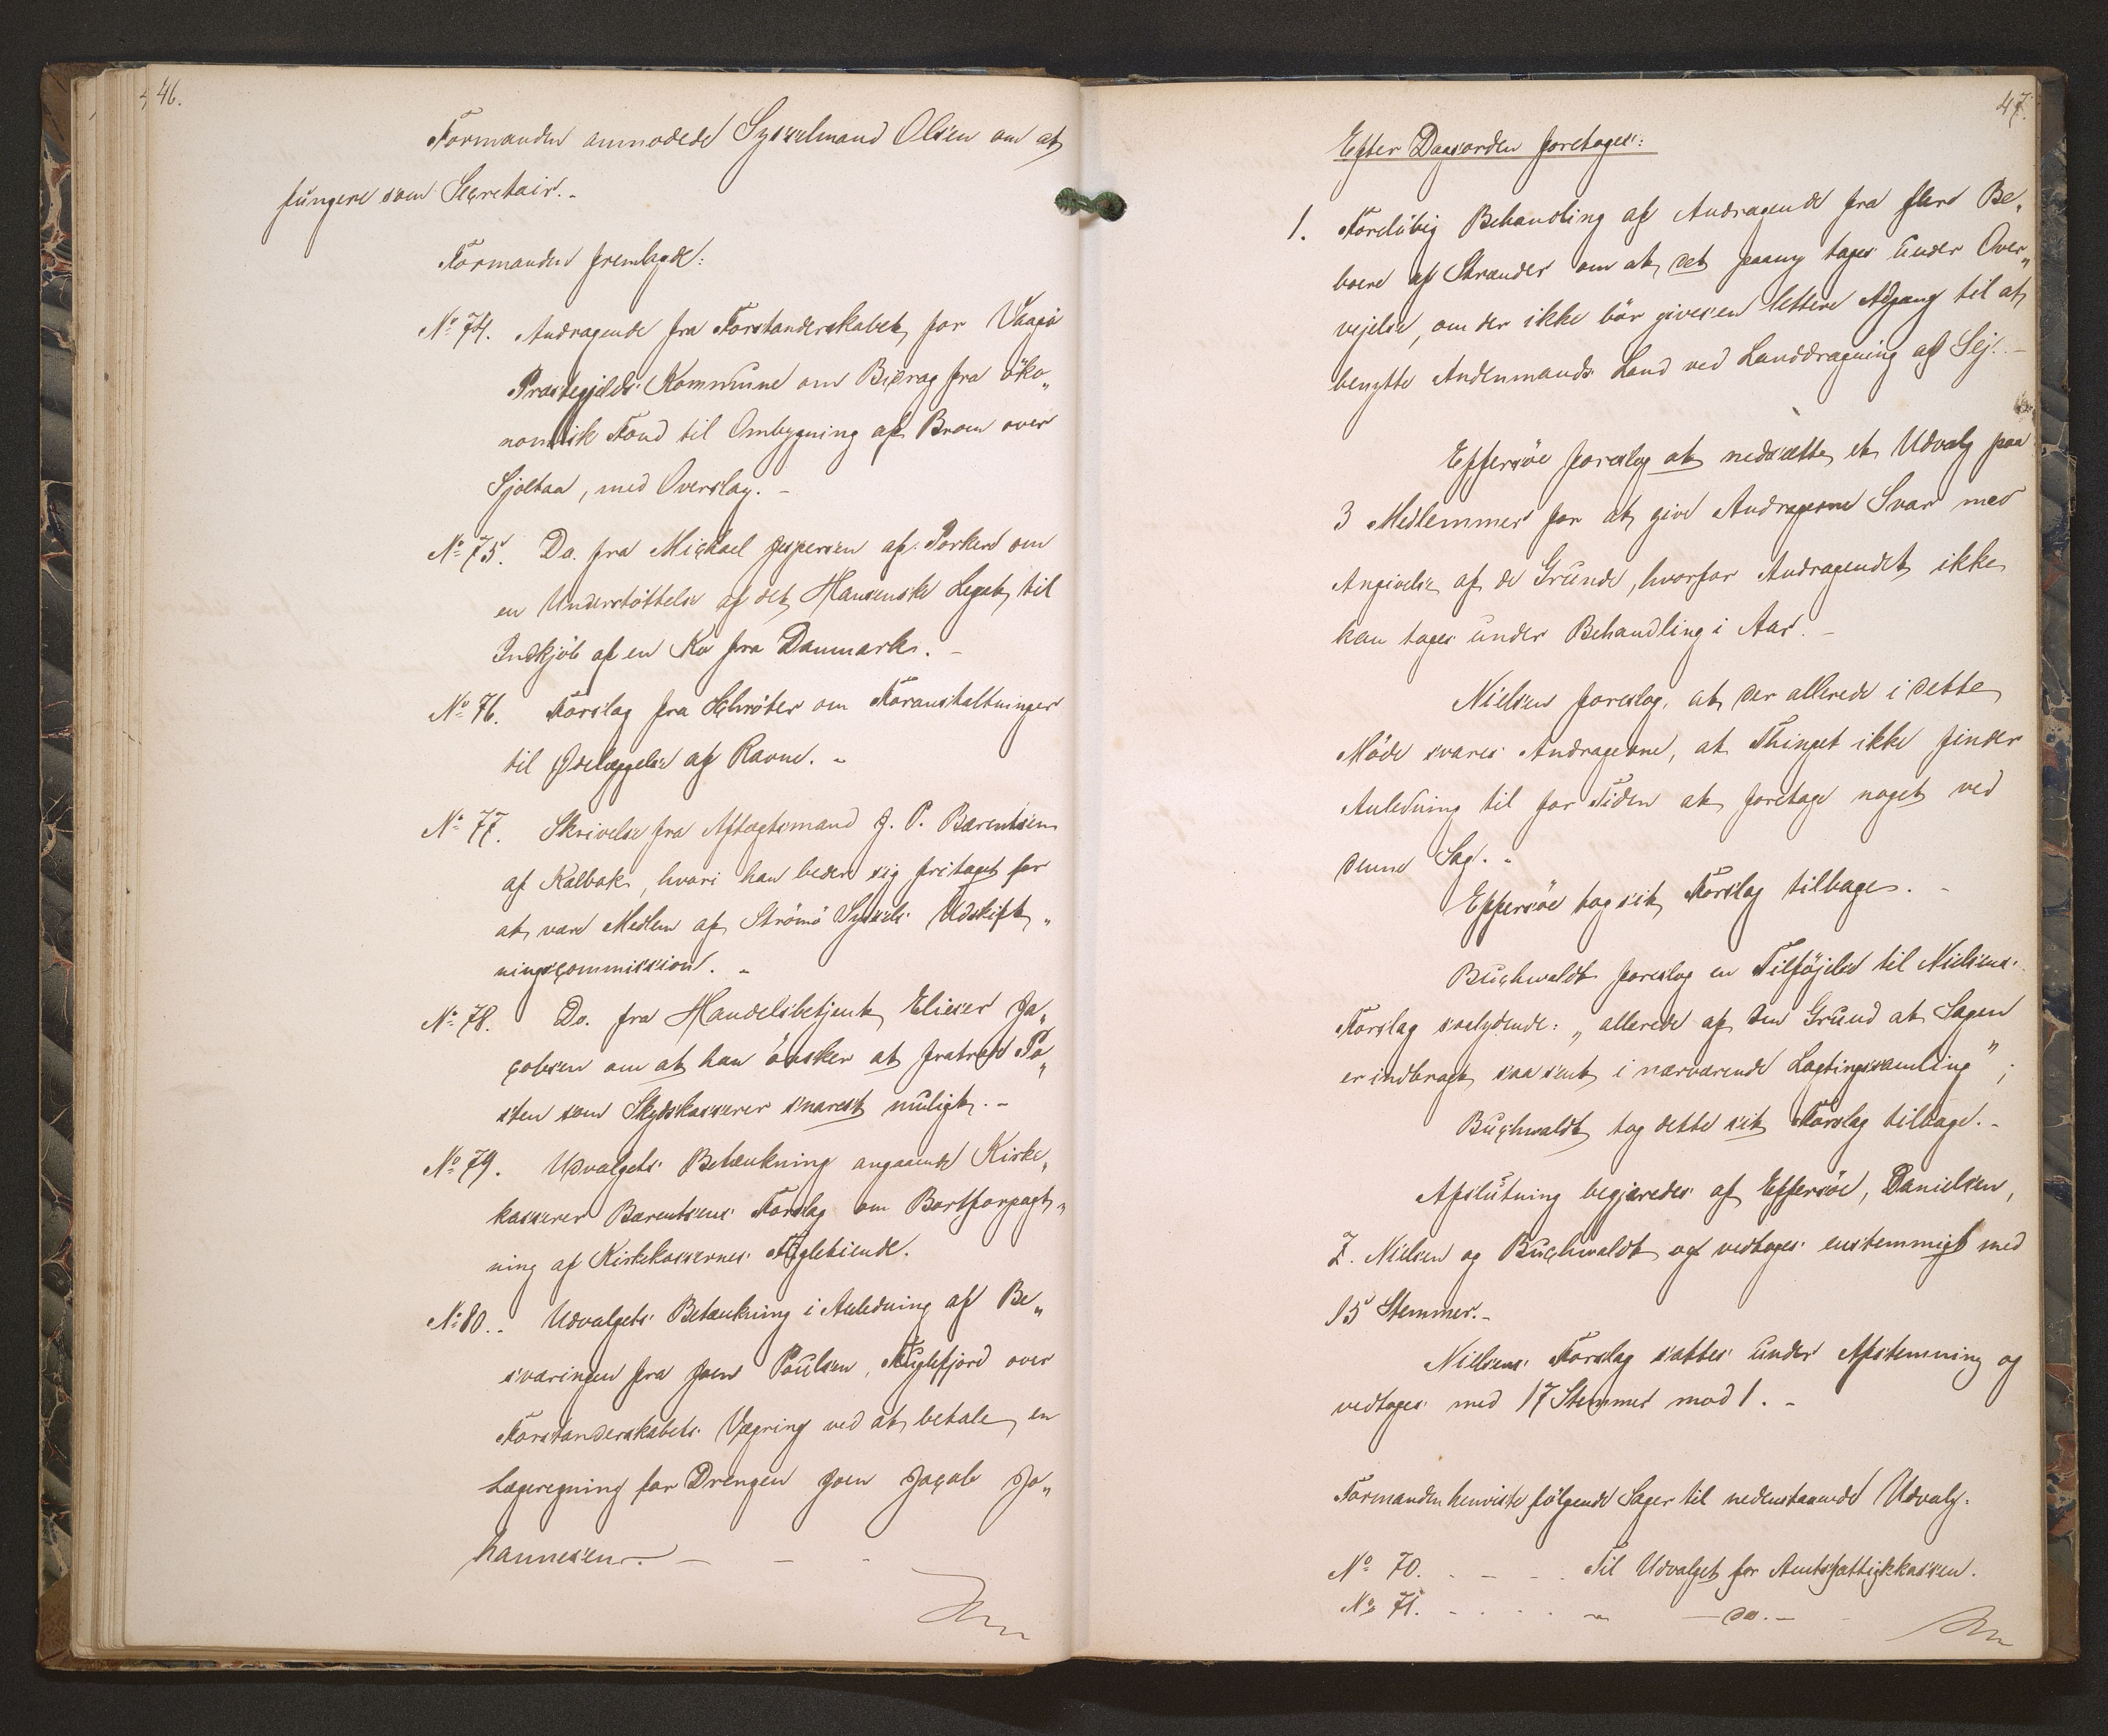 46.
Formanden anmodede Sysselmand Olsen om at
fungere som Secretair. -
Formanden fremlagde:
No 74. Andragende fra Forstanderskabet for Vaagø
Præstegjelds Kommune om Bidrag fra öko„
nomisk Fond til Ombygning af Broen over
Sjoltaa, med Overslag. -
No 75. Do. fra Michael Jespersen af Porkere om
en Understöttelse af det Hansenske Legat til
Indkjöb af en Ko fra Danmark. -
No 76. Forslag fra Schröter om Foranstaltninger
til Ødelæggelse af Ravne. -
No 77. Skrivelse fra Aftægtsmand J. P. Barentsen
af Kalbak, hvori han beder sig fritaget for
at være Medlem af Strömö Syssels Udskift„
ningscommission. -
No 78. Do. fra Handelsbetjent Elieser Ja„
cobsen om at han önsker at fratræde Po„
sten som Skydskasserer snarest muligt. -
No 79. Udvalgets Betænkning angaaende Kirke„
kasserer Barentsens Forslag om Bortforpagt„
ning af Kirkekassernes Fugletiende.
No 80. - Udvalgets Betænkning i Anledning af Be„
sværingen fra Joen Poulsen, Fuglefjord over
Forstanderskabets Vægring ved at betale en
Lægeregning for Drengen Joen Jacob Jo„
hannesen. - - - -
47.
Efter Dagsorden foretoges:
1. Forelöbig Behandling af Andragende fra flere Be„
boere af Strander om at det paany tages under Over„
vejelse, om der ikke bör gives en lettere Adgang til at
benytte Andenmands Land ved Landdragning af Sej. -
Effersöe foreslog at nedsætte et Udvalg paa
3 Medlemmer for at give Andragerne Svar med
Angivelse af de Grunde, hvorfor Andragendet ikke
kan tages under Behandling i Aar. -
Nielsen foreslog, at der allerede i dette
Möde svares Andragerne, at Thinget ikke finder
Anledning til for Tiden at foretage noget ved
denne Sag. -
Effersöe tog sit Forslag tilbage. -
Buchwaldt foreslog en Tilföjelse til Nielsens
Forslag saalydende: „allerede af den Grund at Sagen
er indbragt saa sent i nærværende Lagtingssamling”;
Buchwaldt tog dette sit Forslag tilbage. -
Afslutning begjæredes af Effersöe, Danielsen,
Z. Nielsen og Buchwaldt og vedtoges enstemmigt med
15 Stemmer. -
Nielsens Forslag sattes under Afstemning og
vedtoges med 17 Stemmer mod 1. -
Formanden henviste fölgende Sager til nedenstaaende Udvalg:
No 70. - - - . Til Udvalget for Amtsfattigkassen.
No 71. - . . . „ - do. -